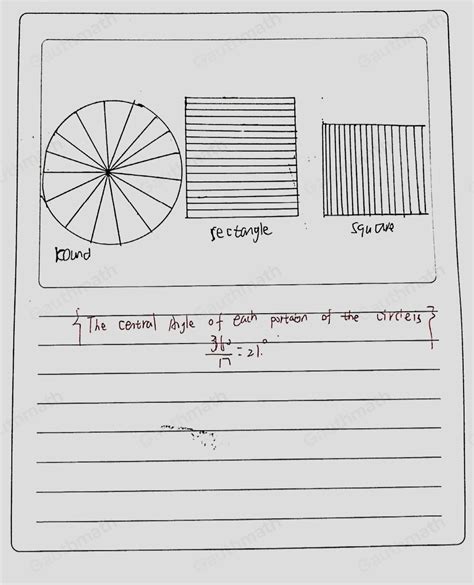 round
rectangle
square
{ The central Angle of each portaion of the circle is }
360/17 = 21.°